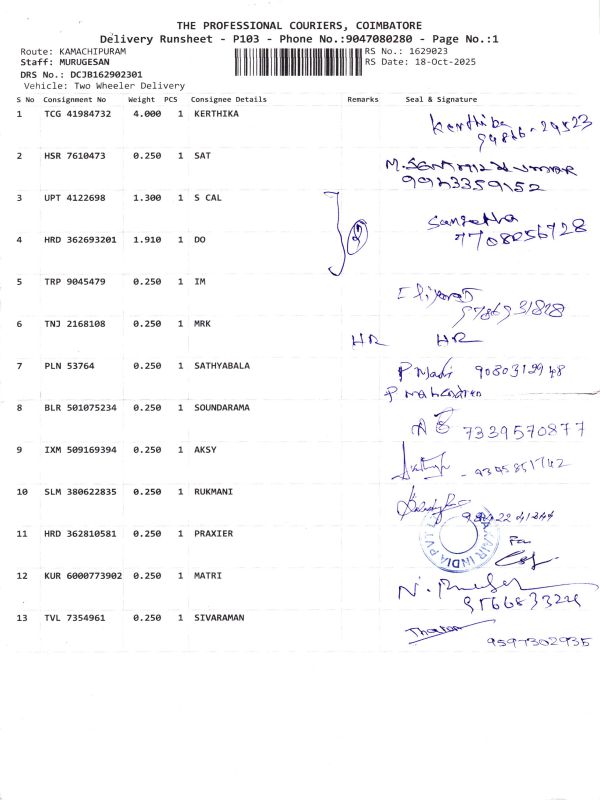 THE PROFESSIONAL COURIERS, COIMBATORE
Delivery Runsheet - P103 - Phone No.:9047080280 - Page No.:1
Route: KAMACHIPURAM RS No.: 1629023
Staff: MURUGESAN RS Date: 18-Oct-2025
DRS No.: DCJB162902301
Vehicle: Two Wheeler Delivery
S No Consignment No Weight PCS Consignee Details Remarks Seal & Signature
1 TCG 41984732 4.000 1 KERTHIKA Kerthika
2 HSR 7610473 0.250 1 SAT
9943359152
3 UPT 4122698 1.300 1 S CAL Sangetha
4 HRD 362693201 1.910 1 DO 2 7708056728
5 TRP 9045479 0.250 1 IM
9786931828
6 TNJ 2168108 0.250 1 MRK
HR HR
7 PLN 53764 0.250 1 SATHYABALA 9080312948
P Mahendren
8 BLR 501075234 0.250 1 SOUNDARAMA
7339570877
9 IXM 509169394 0.250 1 AKSY
10 SLM 380622835 0.250 1 RUKMANI
11 HRD 362810581 0.250 1 PRAXIER
For
INDIA PVT L
12 KUR 6000773902 0.250 1 MATRI
13 TVL 7354961 0.250 1 SIVARAMAN
9597302935